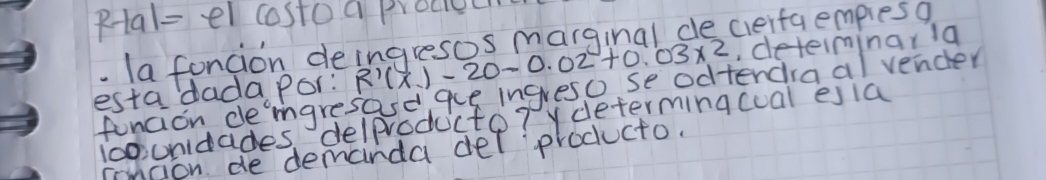 R+al= el costo a
. la función de ingresos marginal de cierta empresa
esta dada por: R'(x)-20-0.02+0.03x2. determinar la
función de ingresos d que ingreso se odtendra al vender
100 unidades del producto? y determina cual es la
de demanda del producto.